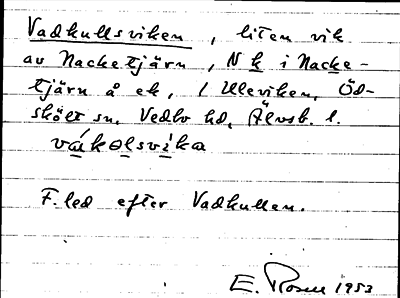 Vadkullsviken, liten vik
av Nacketjärn, N k i Nacke-
tjärn å ek, / Uleviken, Öd-
skölt sn, Vedbo hd, Älvsb. l.
vákolsvìka
F.led efter Vadkullen.
E. Rosell 1953